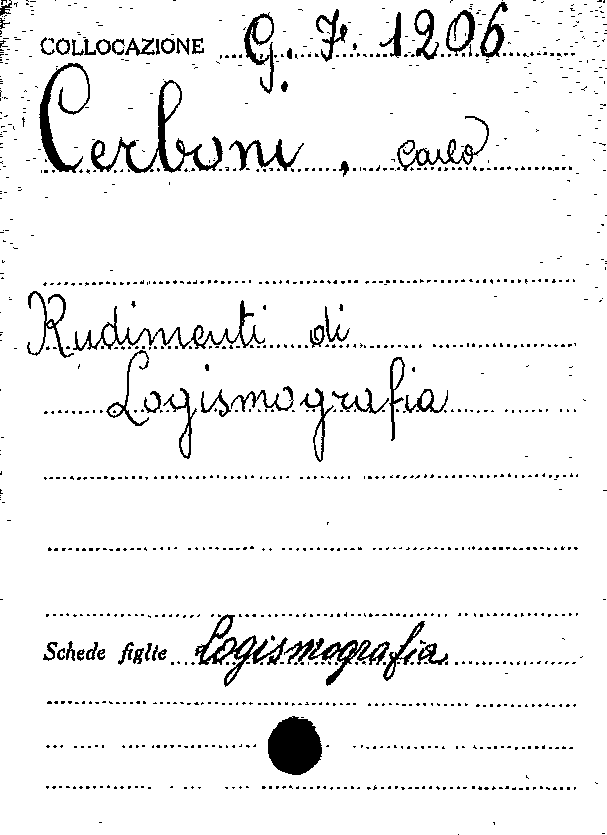 COLLOCAZIONE G. F. 1206
Cerboni, Carlo
Rudimenti di
Logismografia
Schede figlie Logismografia